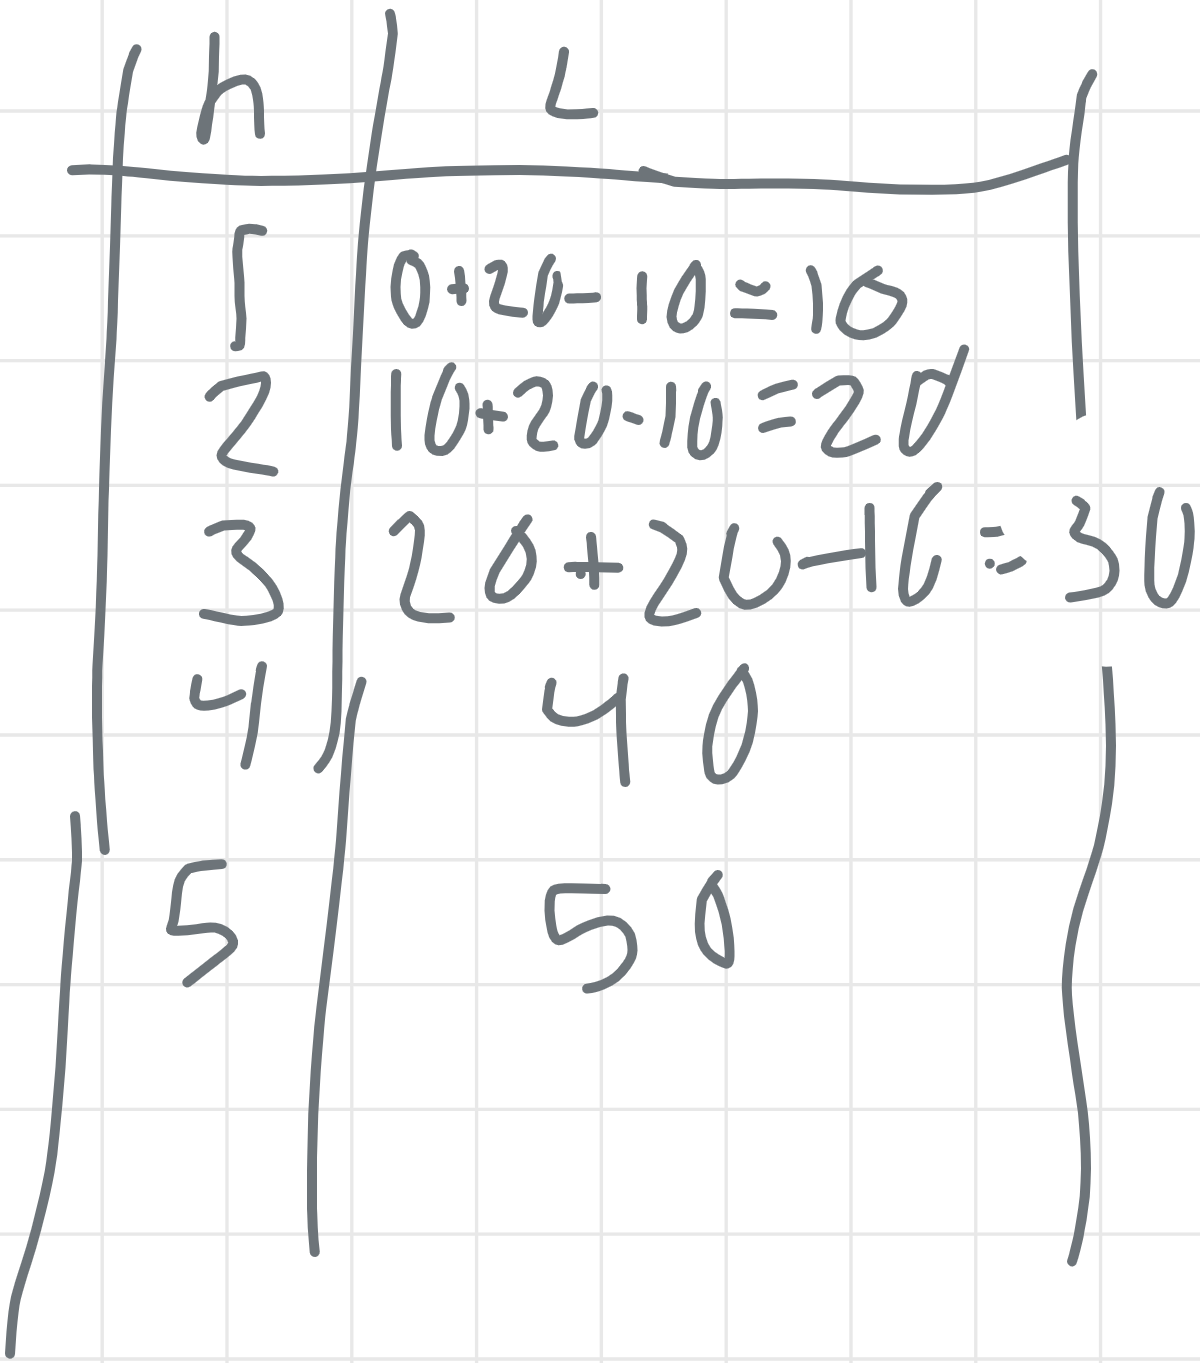 h L
1 0+20-10=10
2 10+20-10=20
3 20+20-10=30
4 40
5 50